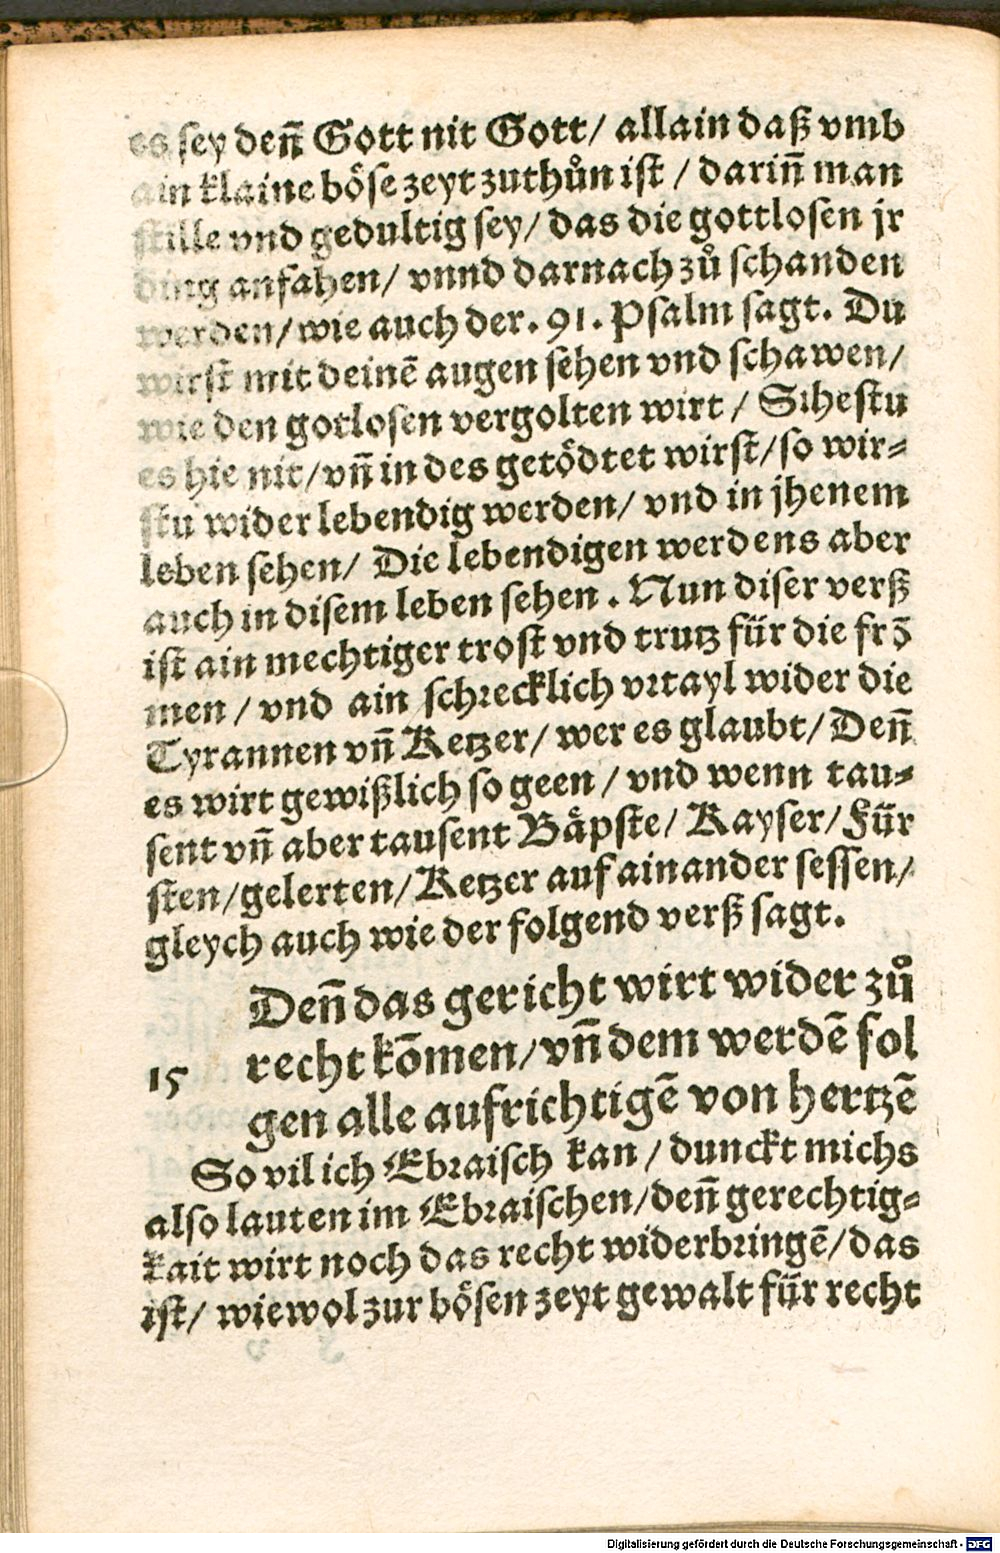 es sey deñ Gott nit Gott/ allain daß vmb
ain klaine böse zeyt zuthůn ist / dariñ man
stille vnd gedultig sey/ das die gottlosen jr
ding anfahen/ vnnd darnach zů schanden
werden/wie auch der. 91. Psalm sagt. Du
wirst mit deinẽ augen sehen vnd schawen/
wie den gotlosen vergolten wirt / Sihestu
es hie nit/vñ in des getödtet wirst/so wir⸗
stu wider lebendig werden/ vnd in jhenem
leben sehen/ Die lebendigen werdens aber
auch in disem leben sehen . Nun diser verß
ist ain mechtiger trost vnd trutz für die frõ
men / vnd ain schrecklich vrtayl wider die
Tyrannen vñ Ketzer/ wer es glaubt/ Deñ
es wirt gewißlich so geen / vnd wenn tau⸗
sent vñ aber tausent Bäpste/ Kayser/ Für
sten/gelerten/Ketzer auf ainander sessen/
gleych auch wie der folgend verß sagt.
Deñ das gericht wirt wider zů
15 recht kõmen/vñ dem werdẽ fol
gen alle aufrichtigẽ von hertzẽ
So vil ich Ebraisch kan / dunckt michs
also lauten im Ebraischen/deñ gerechtig⸗
kait wirt noch das recht widerbringẽ/das
ist/ wiewol zur bösen zeyt gewalt für recht
Digitalisierung gefördert durch die Deutsche Forschungsgemeinschaft - DFG